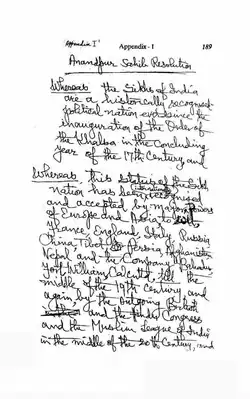 Appendix I
Appendix - I 189
Anandpur Sahib Resolution
Whereas the Sikhs of India
are a historically recognised
political nation ever since the
inauguration of the Order of
the Khalsa in the concluding
year of the 17th Century, and
Whereas this status of the Sikh
nation has been
and accepted by major powers
of Europe and Asia
France, England, Italy, Russia
China, Tibet, Persia, Afghanistan
Nepal and the Company Bahadur
Fort William Calcutta, till the
middle of the 19th Century, and
again by the outgoing British
and the Hindu Congress
and the Muslim League of India
in the middle of the 20th Century, and